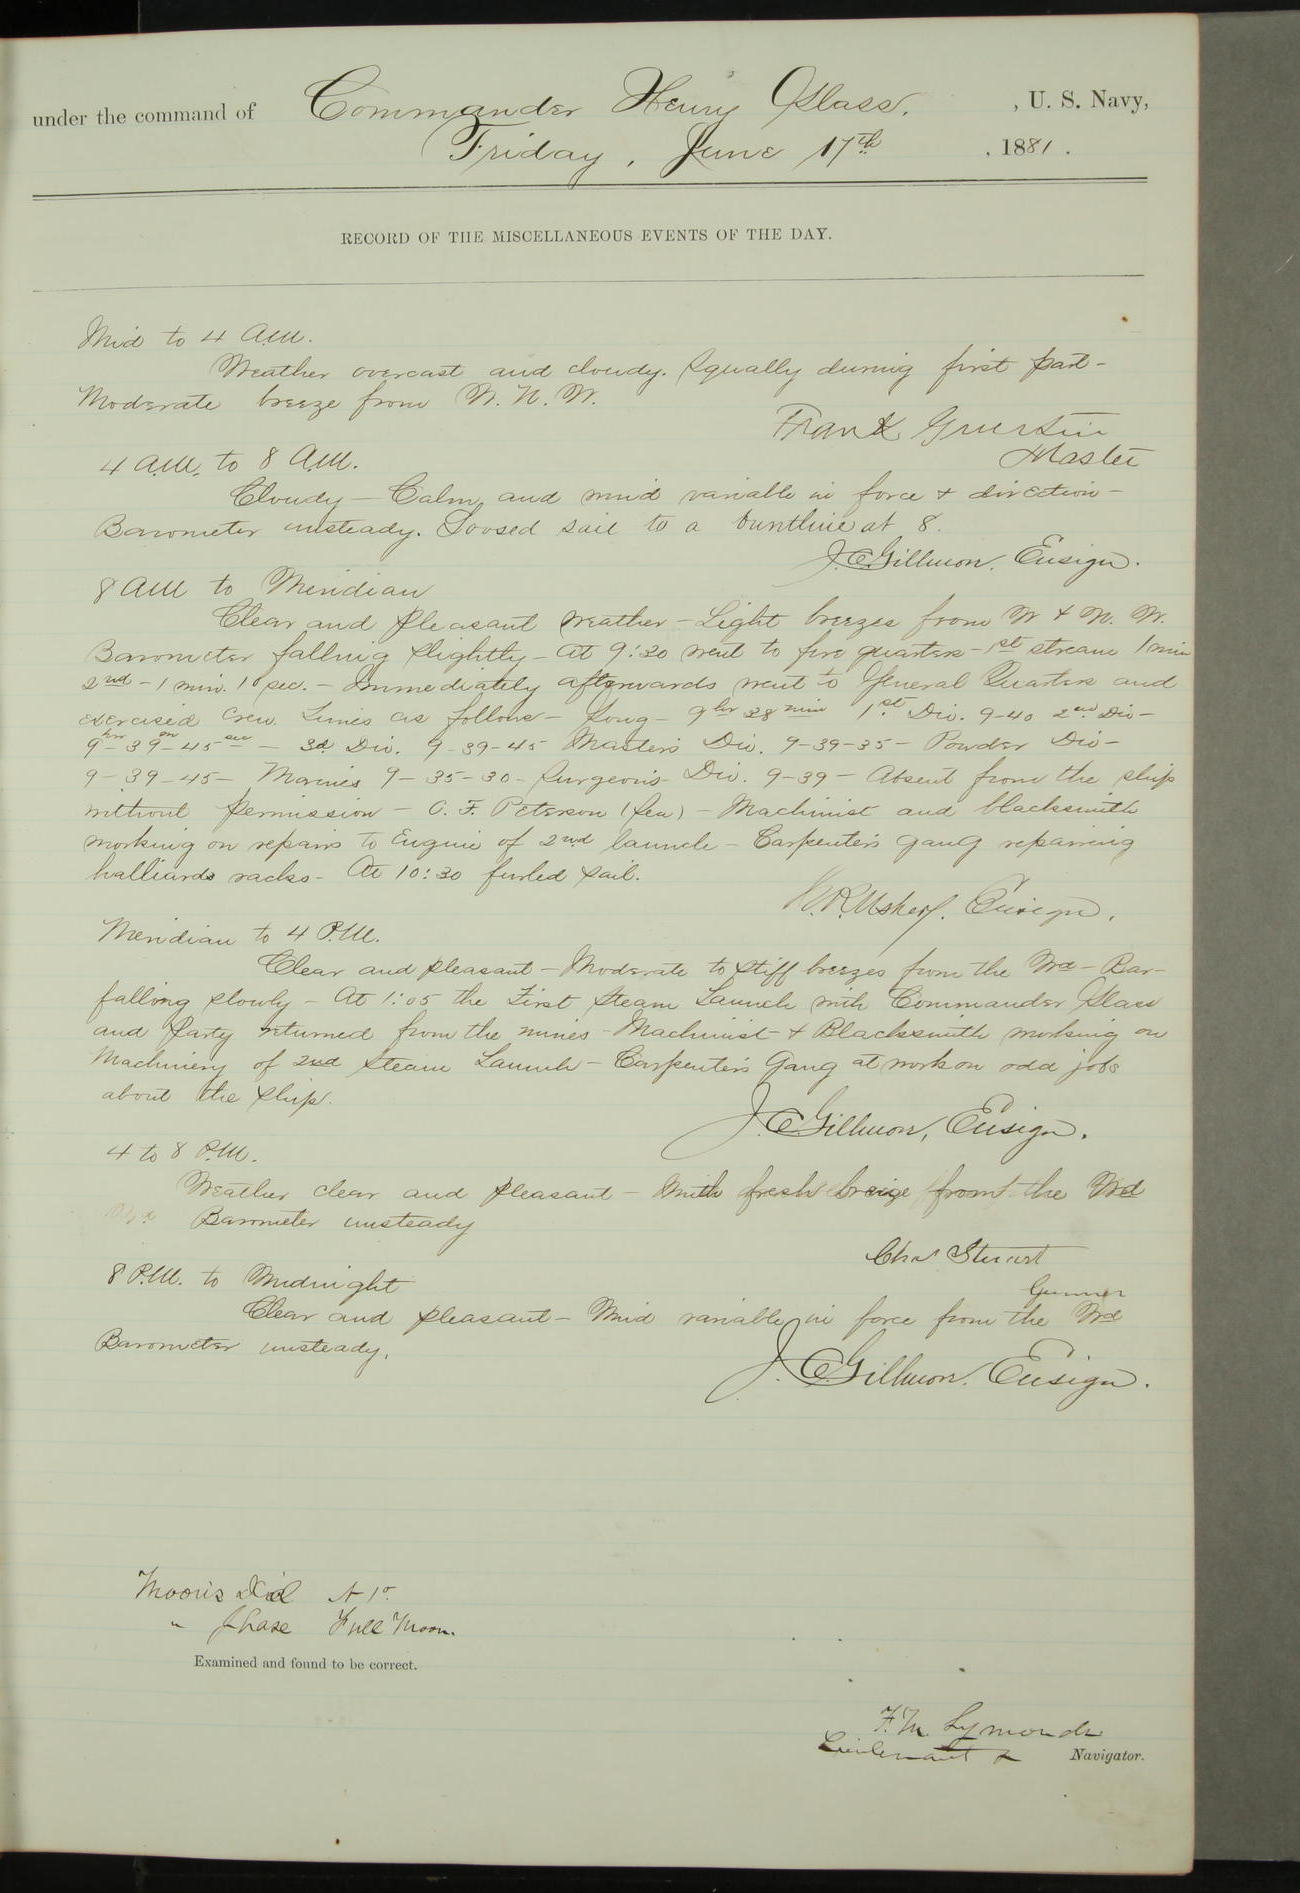 under the command of Commander Henry Glass. , U. S. Navy,
Friday, June 17th , 1881.
RECORD OF THE MISCELLANEOUS EVENTS OF THE DAY.
Mid to 4 A.M.
Weather overcast and cloudy. Squally during first part-
Moderate breeze from W. N. W.
Frank
Master
4 A.M. to 8 A.M.
Cloudy - Calm, and wind variable in force & direction-
Barometer unsteady. Loosed sail to a buntline at 8.
J. C. Gillmore, Ensign.
8 AM to Meridian
Clear and pleasant weather - Light breezes from W & N. W.
Barometer falling slightly - At 9:30 went to fire quarters - 1st stream 1 min
2nd - 1 min. 1 sec. - Immediately afterwards went to General Quarters and
exercised crew. Times as follows - Gong - 9hr 38min 1st Div. 9-40 2nd Div-
9hr-39m-45sec - 3d Div. 9-39-45 Master's Div. 9-39-35 - Powder Div-
9-39-45 - Marines 9-35-30 - Surgeon's Div. 9-39 - Absent from the ship
without permission - C. F. Peterson (sea) - Machinist and blacksmith
working on repairs to Engine of 2nd launch - Carpenter's gang repairing
halliards racks - At 10:30 furled sail.
N. R. Usher, Ensign.
Meridian to 4 P.M.
Clear and pleasant - Moderate to stiff breezes from the Wd - Bar-
falling slowly - At 1:05 the First Steam Launch with Commander Glass
and party returned from the mines - Machinist & Blacksmith working on
Machinery of 2nd Steam Launch - Carpenter's Gang at work on odd jobs
about the ship.
J. C. Gillmore, Ensign.
4 to 8 P.M.
Weather clear and pleasant - with fresh breeze from the Wd
Barometer unsteady
Chas Stuart
Gunner
8 P.M. to Midnight
Clear and pleasant - Wind variable in force from the Wd
Barometer unsteady.
J. C. Gillmore. Ensign.
Moon's
" Phase Full Moon.
Examined and found to be correct.
F. M. Symonds
Lieutenant & Navigator.